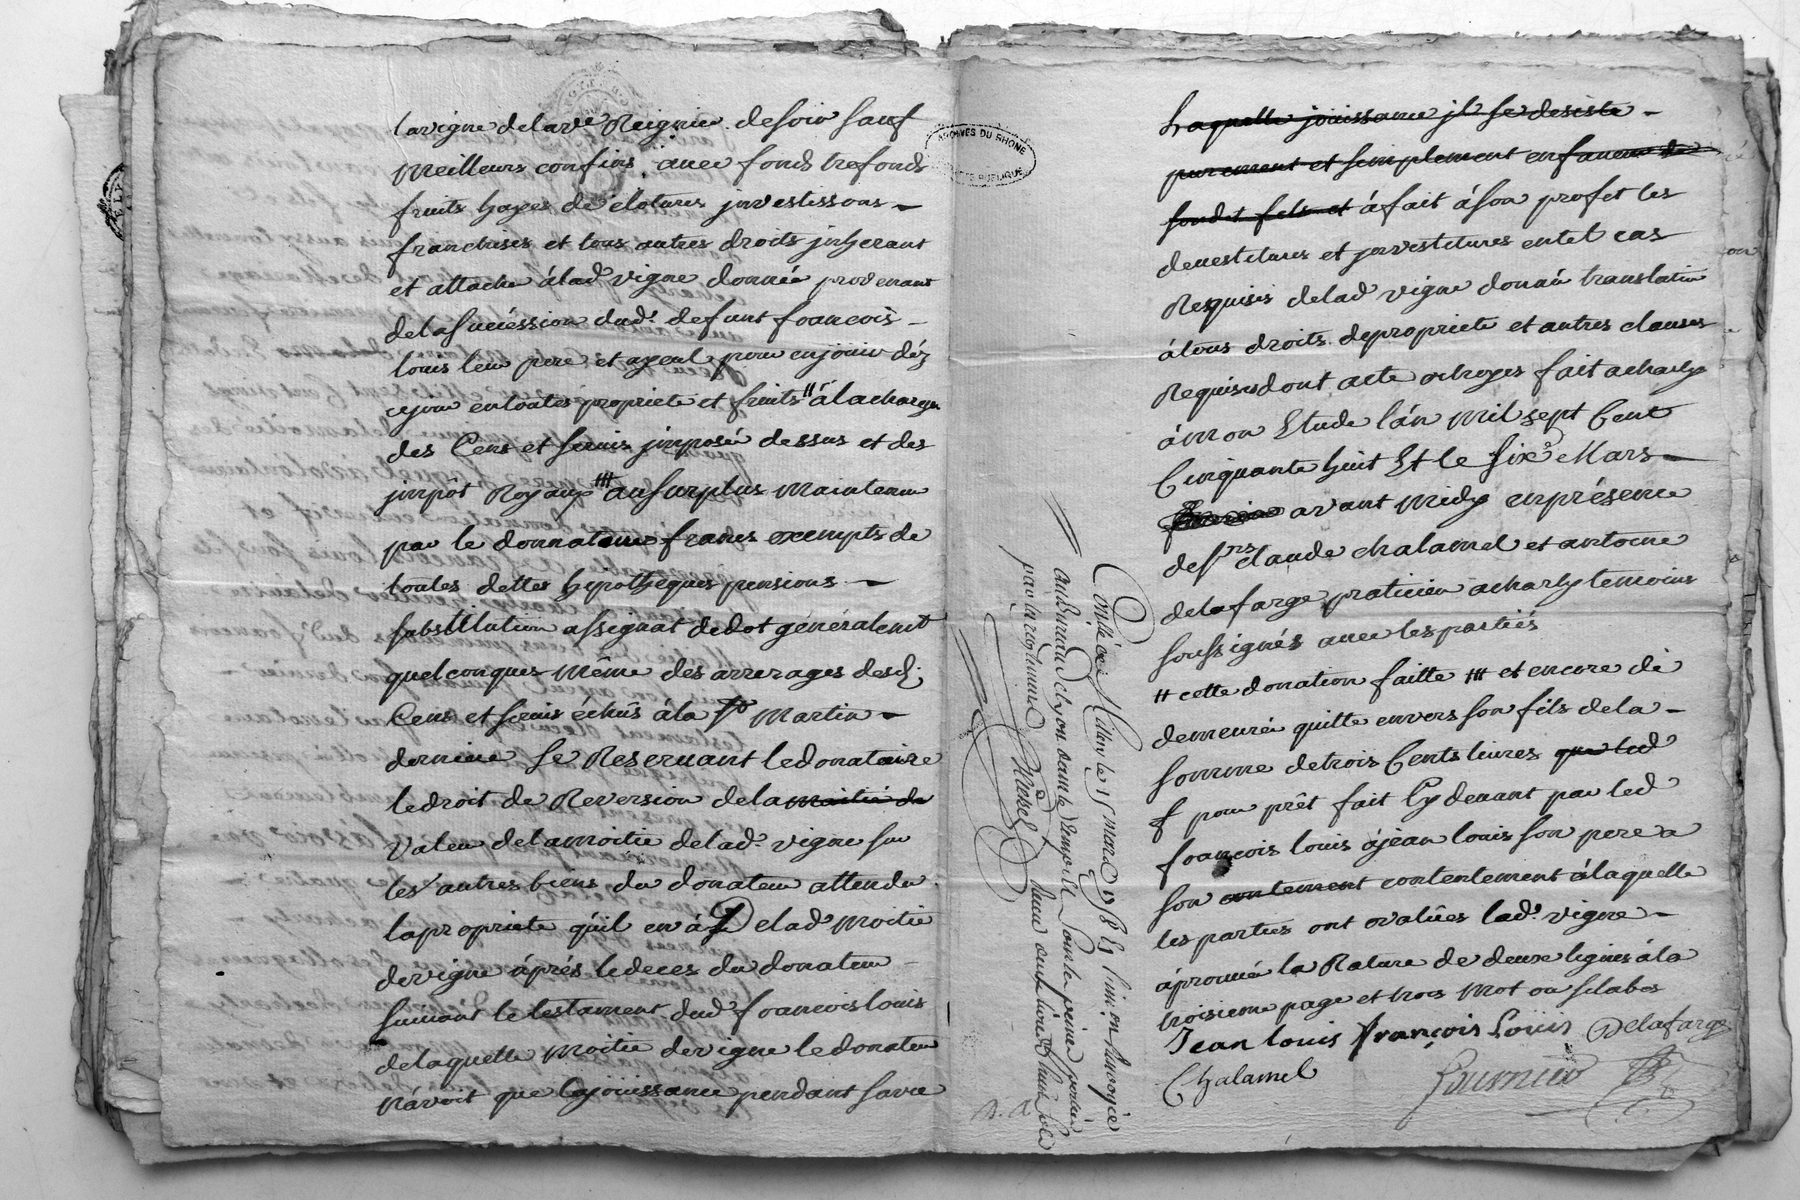 la vigne de la ve Reignie de soir sauf
meilleurs confins avec fonds trefonds
fruits hayes de clotures jnvestisons
franchises et tous autres droits jnherant
et attache à lade vigne donnée provenant
de la succéssion dudt defunt francois
louis leur pere et ayeul pour en jouir déz
ce jour en toutes propriete et fruits # à la charge
des Cens et servis jmposé dessus et des
jmpôt Royaux ### au surplus maintenu
par le donnateur francs exempts de
toutes dettes hipotheques pensions
substitution assignat de dot généralemt
quelconques même des arrerages desd:
Cens et servis échûs à la St Martin
derniere se Reservant le donataire
le droit de Reversion de la moitié de
valeur de la moitie delade vigne sur
les autres biens du donateur attendu
la propriete qu'il en à f delade moitié
de vigne áprés le deces du donateur
suivant le testament dud francois louis
de laquelle moitie de vigne le donateur
n'avoit que la joüissance pendant sa vie
ARCHIVES DU RHONE
Conllé à Millery le 15 mars 1758 Et l'insinuation renvoyée
au Bureau de Lyon dans le tems de l'ord. sous les peines portées
par la
Reçu douze sols
D. A
Laquelle joüissance jl se desiste
purement et simplement en faveur de
sondt fils et à fait à son profet les
devestitures et jnvestitures en tel cas
Requisis delad vigne donnée translation
à tous droits de propriete et autres clauses
Requises dont acte octroyes fait a charly
à mon Etude l'án mil sept Cent
Cinquante huit Et le sixe Mars
avant midy en présence
de srs claude chalamel et antoine
delafarge praticien a charly temoins
soussignés avec les parties
# cette donation faitte ### et encore de
demeuré quitte envers son fils de la
somme de trois Cents livres que led
f pour prêt fait Cy devant par led
francois louis à jean louis son pere a
son contement contentement à laquelle
les parties ont évalüés lade vigne
áprouvé la Rature de deux lignes à la
troisieme page et trois mot ou silabes
Jean louis françois Loüis Delafarge
Chalamel